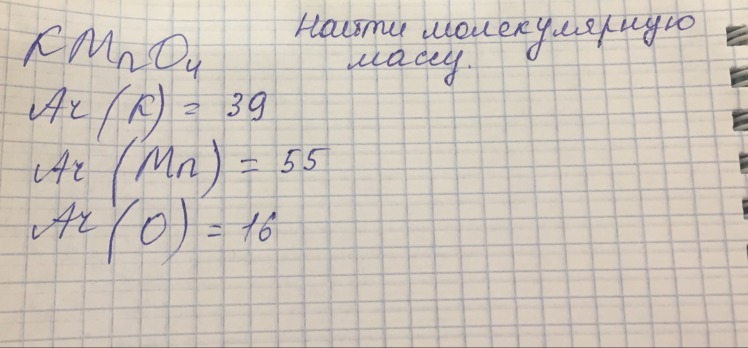 KMnO₄
Найти молекулярную
массу.
Ar (K) = 39
Ar (Mn) = 55
Ar (O) = 16